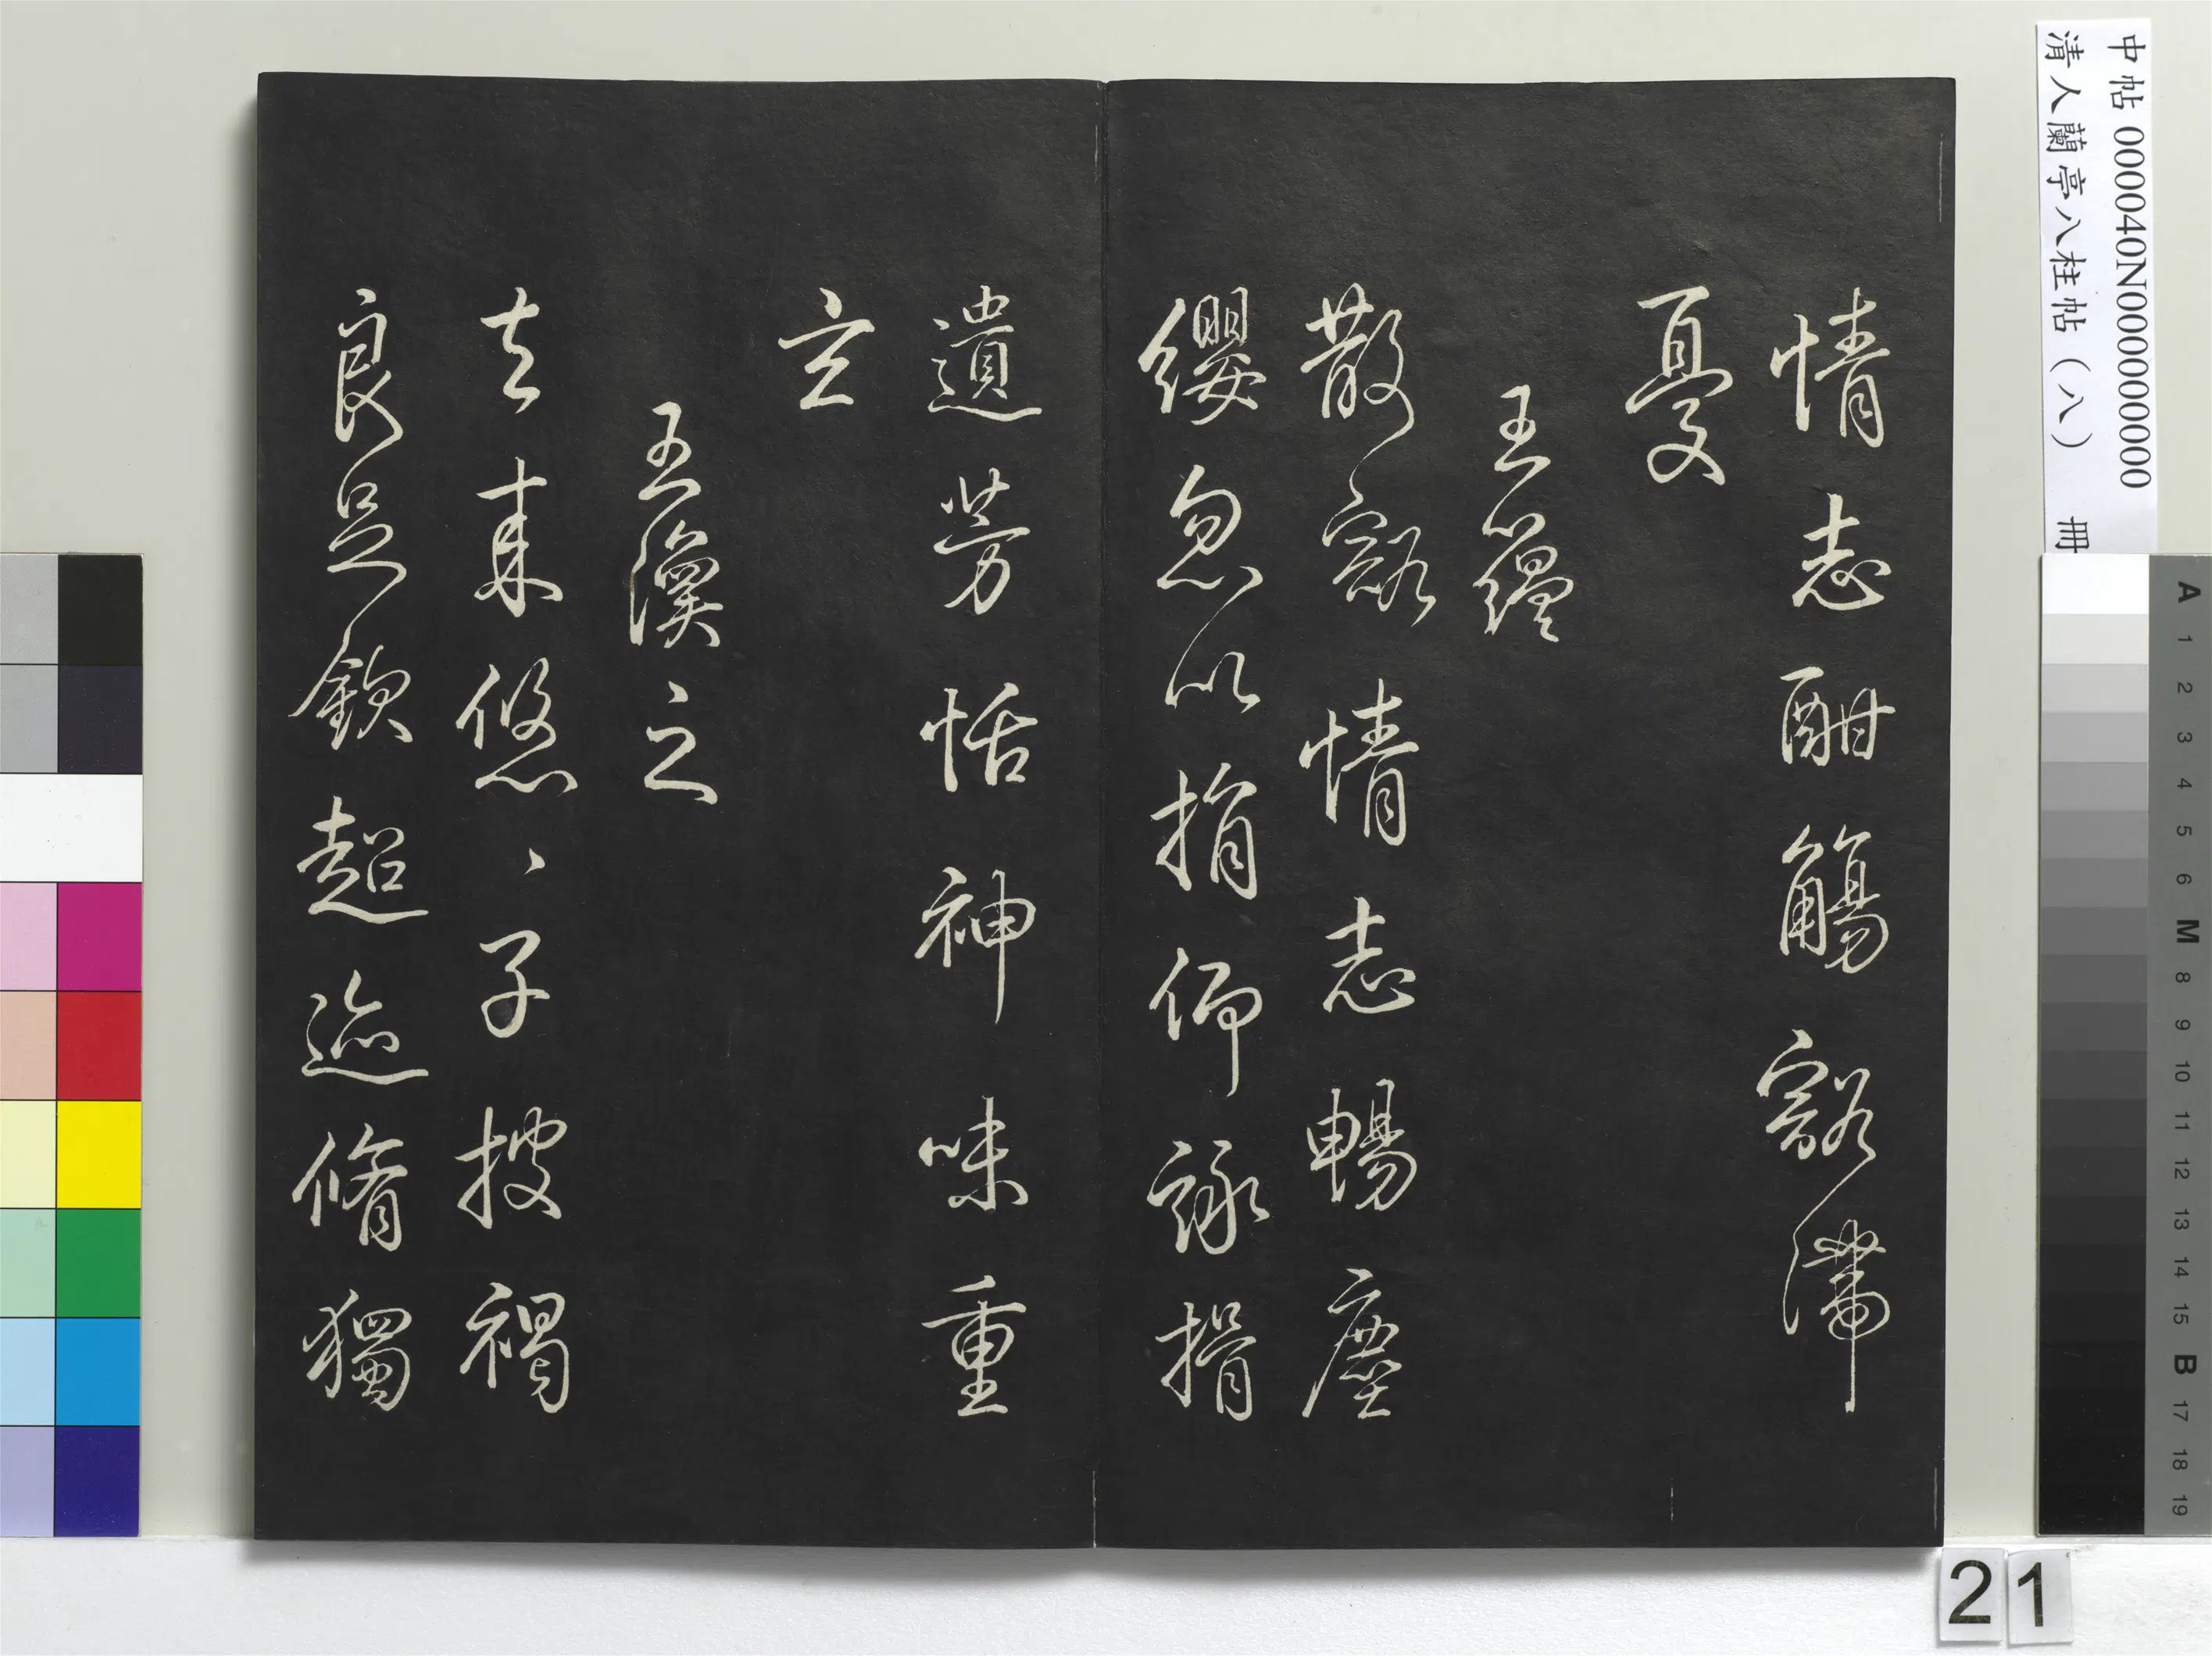 中帖 000040N000000000
清人蘭亭八柱帖（八） 冊
情志酣觴豁滯
憂
王蘊
散豁情志暢塵
纓忽以捐仰詠揖
遺芳恬神味重
玄
王渙之
去來悠、子披褐
良足欽超迹脩獨
A 1 2 3 4 5 6 M 8 9 10 11 12 13 14 15 B 17 18 19
21